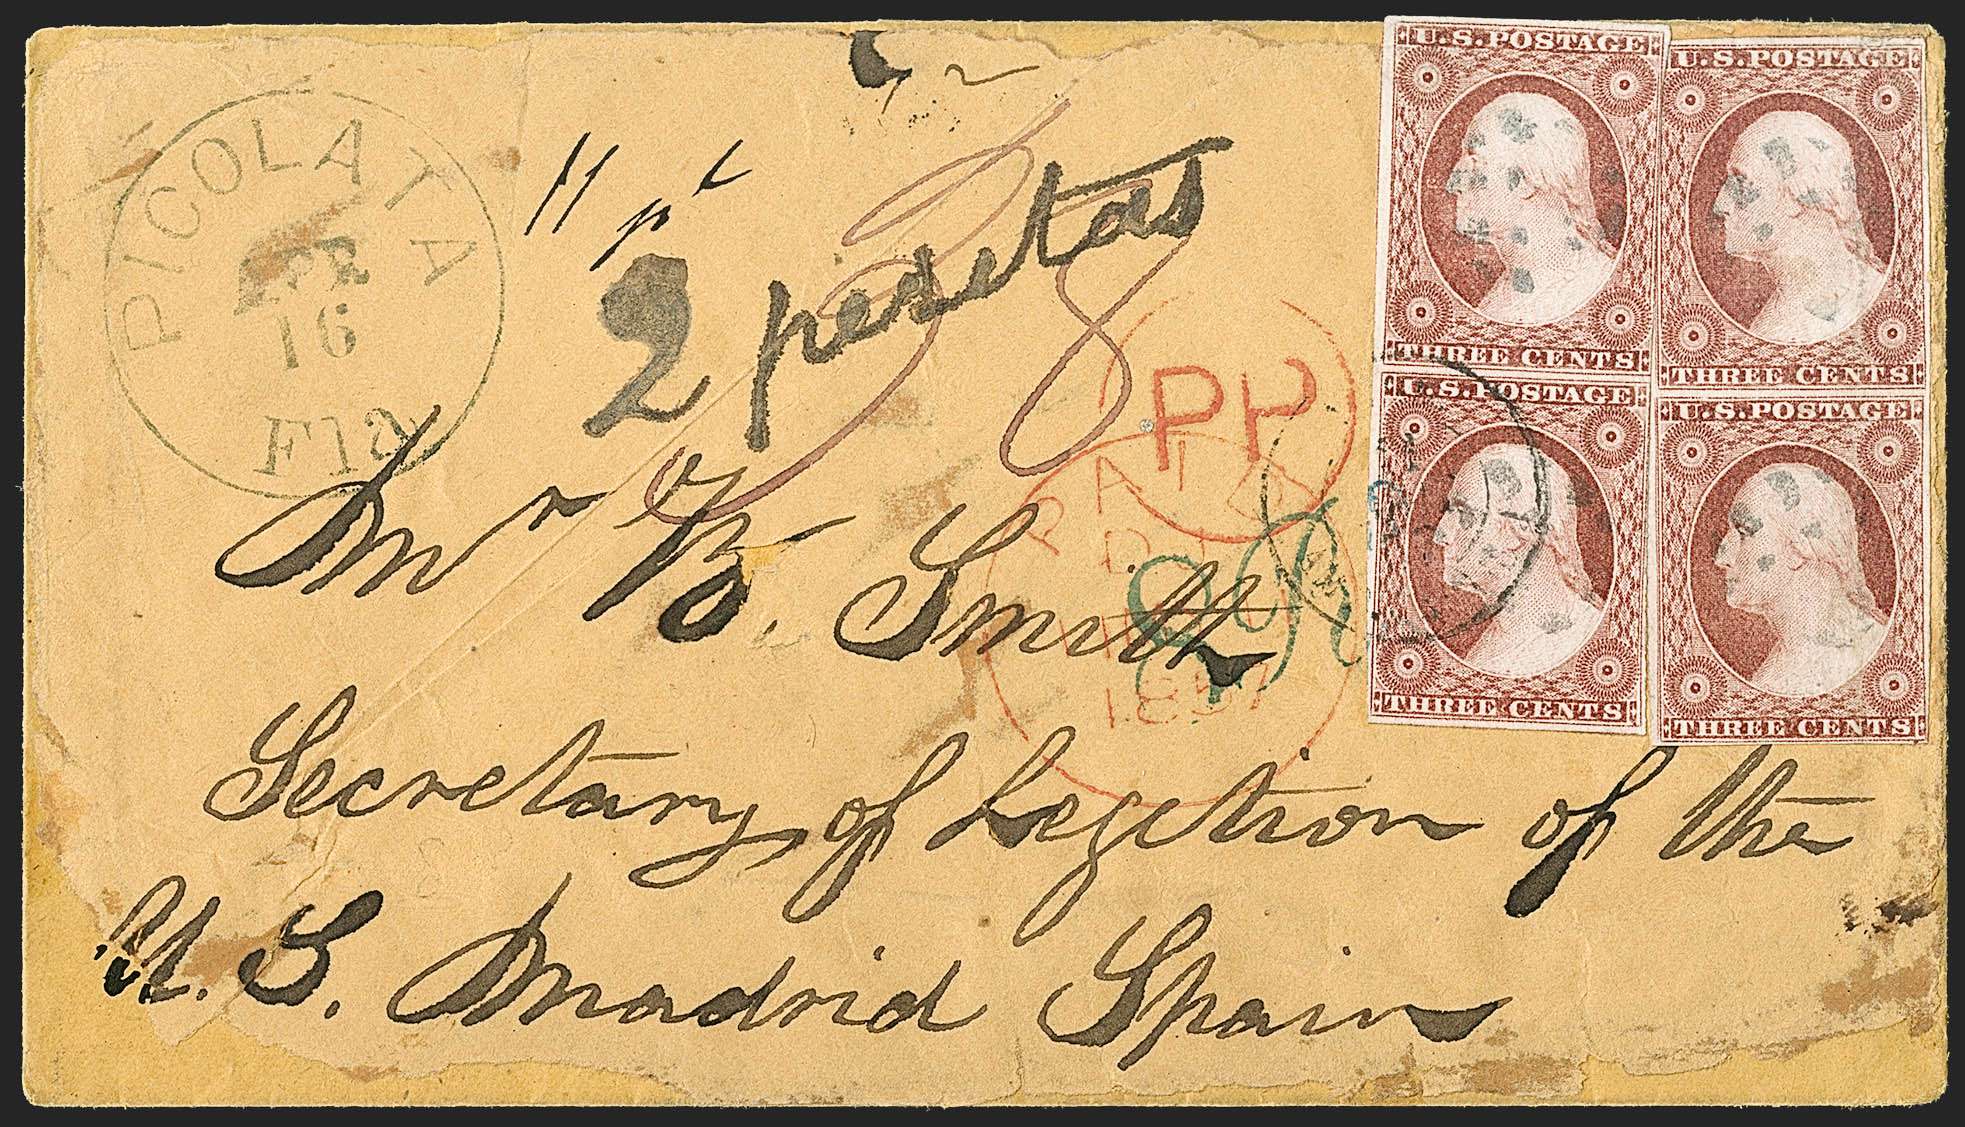 PICOLATA
APR
16
Fla
11 pt
2 pesetas
PP
PAID
1857
8R
U.S. POSTAGE
THREE CENTS
U.S. POSTAGE
THREE CENTS
U.S. POSTAGE
THREE CENTS
U.S. POSTAGE
THREE CENTS
Mr B. Smith
Secretary of Legetion of the
U. S. Madrid Spain